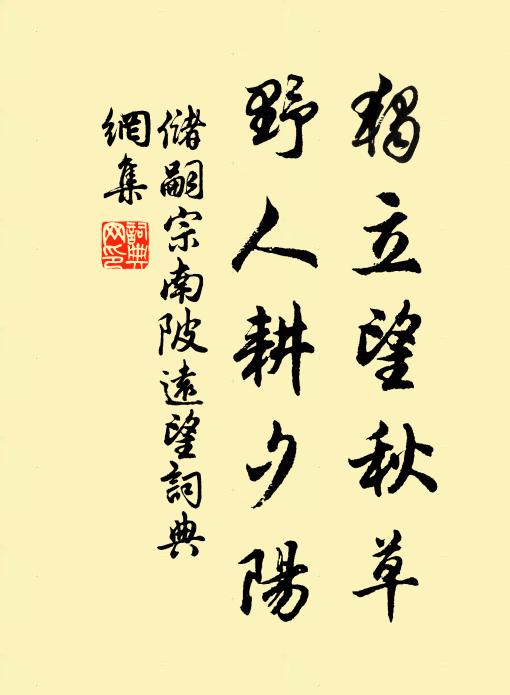 獨立望秋草
野人耕夕陽
儲嗣宗南陂遠望詞典
網集
詞典
网印